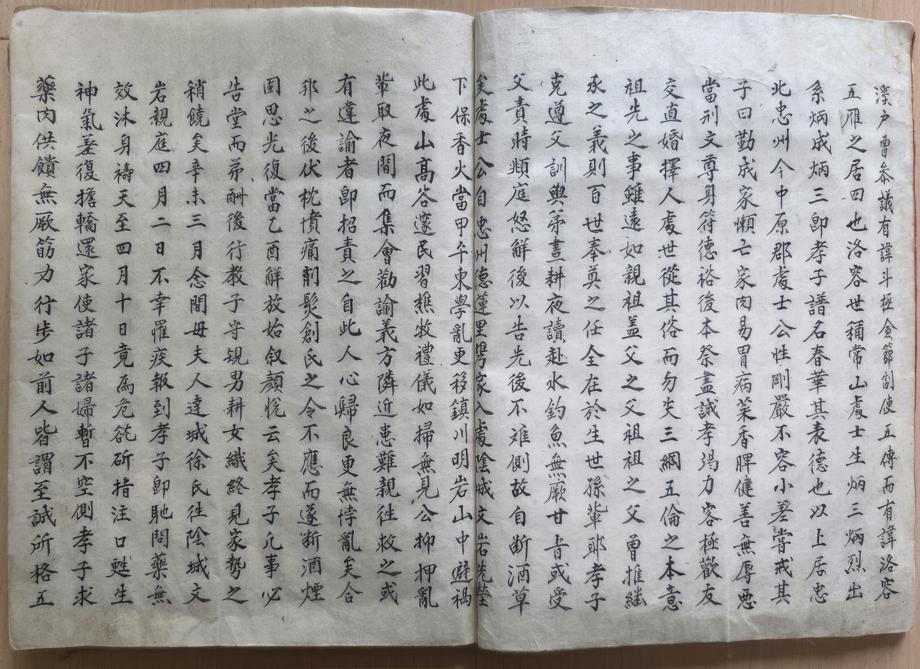 漢戶曹參議有諱斗極僉節制使五傳而有諱洛容
五雁之居四也洛容世稱常山處士生炳三炳烈出
系炳成炳三卽孝子譜名春華其表德也以上居忠
此忠州今中原郡處士公性剛嚴不容小差嘗戒其
子曰勤成家懶亡家肉易胃病菜香脾健善無辱惡
當刑文尊身符德裕後本祭盡誠孝竭力容極歡友
交直婚擇人處世從其俗而勿失三綱五倫之本意
祖先之事雖遠如親祖盖父之父祖之父曾推繼
承之義則百世奉奠之任全在於生世孫輩耶孝子
克遵父訓與弟晝耕夜讀赴水釣魚無厥甘旨或受
父責時頻庭怒解後以告先後不难側故自断酒草
矣處士公自忠州德蓮里挈家入處陰城文岩先瑩
下保香火當甲午東學亂更移鎮川明岩山中避禍
此處山高谷邃民習樵牧禮儀如掃無見公抑押亂
輩取夜間而集會勸諭義方隣近患難親往救之或
有違諭者卽招責之自此人心歸良更無悖亂矣合
邦之後伏枕憤痛削髮創氏之令不應而遂断酒煙
固思光復當乙酉解放始叙顏悅云矣孝子凡事必
告堂而弟酬後行教子守規男耕女織終見家勢之
稍饒矣辛未三月念間毋夫人達城徐氏徃陰城文
岩親庭四月二日不幸罹疾報到孝子卽馳問藥無
效沐身祷天至四月十日竟為危欲斫指注口甦生
神氣差復擔轎還家使諸子諸婦暫不空側孝子求
藥肉供饋無厥筋力行步如前人皆謂至誠所格五